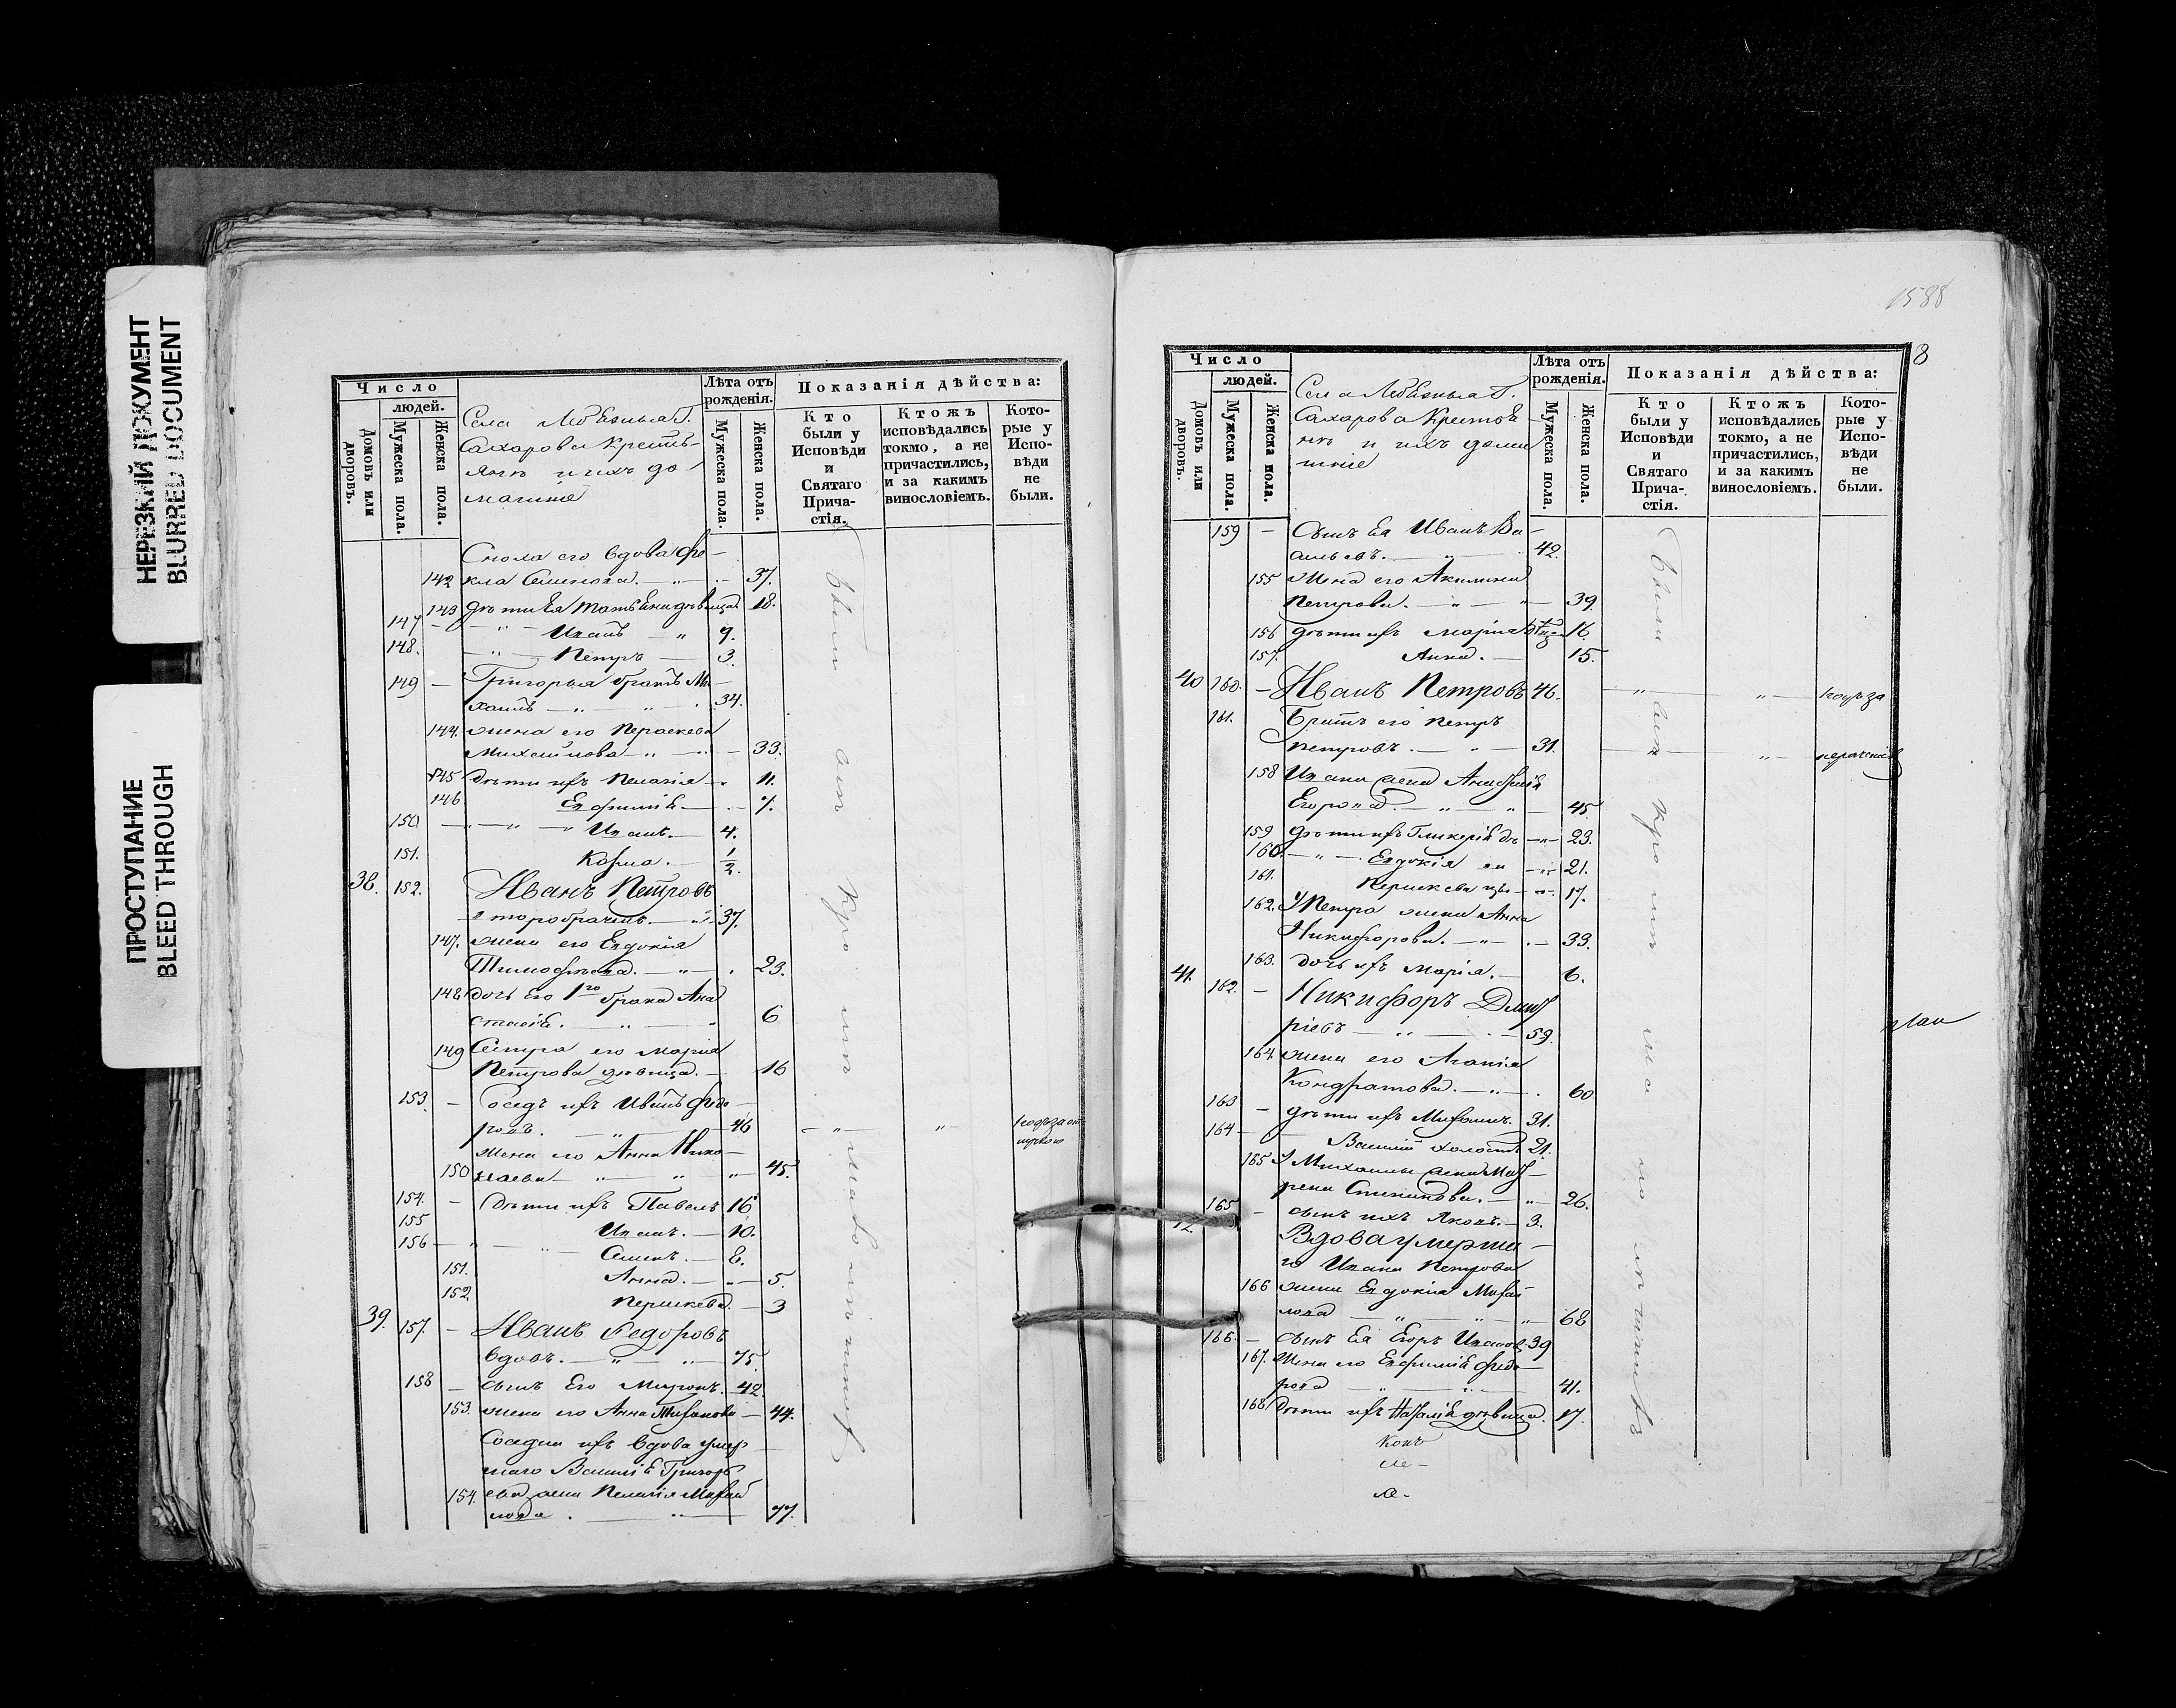 НЕРЕЗКИЙ ДОКУМЕНТ
BLURRED DOCUMENT
ПРОСТУПАНИЕ
BLEED THROUGH
Число
людей.
Домовъ или дворовъ.
Мужеска пола.
Женска пола.
Села
Сахарова Кресть-
янъ и ихъ до
машніе
Лѣта отъ рожденія.
Мужеска пола.
Женска пола.
Показанія дѣйства:
Кто были у Исповѣди и Святаго Прича-стія.
Ктожъ исповѣдались токмо, а не причастились, и за какимъ винословіемъ.
Кото-рые у Испо-вѣди не были.
Сноха его вдова Фе-
142 кла Семенова. 37.
143 дѣти Ея девица 18.
147 Иванъ 9.
148. Петръ 3.
149 Григорья братъ Ми-
хаилъ 34.
144. жена его Параскева
Михайлова 33.
145 дѣти ихъ Пелагія 11.
146 Евфимія 7.
150 Иванъ. 4.
151. Козма. 1/2.
38. 152. Иванъ Петровъ
второбрачн. 37.
147. жена его Евдокія
Тимофеева. 23.
148 дочь Его 1го брака Ана
стасія. 6
149 Сестра его Марія
Петрова девица. 16
153. Соседъ ихъ Иванъ Федо-
ровъ. 46
жена его Анна Нико-
150 лаева 45.
154. дѣти ихъ Павелъ 16
155 Иванъ. 10.
156 Семенъ. 8.
151. Анна. 5.
152. Параскева. 3
39. 157. Иванъ Федоровъ
вдовъ. 75.
158 сынъ Его Миронъ. 42
153. жена его Анна 44.
Соседка ихъ вдова умер
шаго Василія Григорь
154. ева жена Пелагія Михай
лова. 77.
1588
8
Число
людей.
Домовъ или дворовъ.
Мужеска пола.
Женска пола.
Села
Сахарова Крестья
нъ и ихъ домаш
ніе
Лѣта отъ рожденія.
Мужеска пола.
Женска пола.
Показанія дѣйства:
Кто были у Исповѣди и Святаго Прича-стія.
Ктожъ исповѣдались токмо, а не причастились, и за какимъ винословіемъ.
Кото-рые у Испо-вѣди не были.
159 Сынъ Ея Иванъ Ва-
сильевъ. 42.
155 жена его Акилина
Петрова. 39.
156 дѣти ихъ Марія 16.
157. Анна. 15.
40 160. Иванъ Петровъ 46.
161. Братъ его Петръ
Петровъ. 31.
158 Ивана жена
Егорова. 45.
159 дѣти ихъ Гликерія 23.
160. Евдокія 21.
161. Параскева 17.
162. У Петра жена Анна
Никифорова. 33.
163. дочь ихъ Марія. 6.
41. 162. Никифоръ Дмит
ріевъ 59.
164 жена его Агапія
Кондратова. 60
163 дѣти ихъ 31.
164 Василій холостъ 21.
165 У Михаилы жена Мат
рена 26.
165 сынъ ихъ Яковъ. 3.
Вдова умерша-
го Ивана Петрова
166 жена Евдокія Михай
лова 68
166. сынъ Ея Егоръ Ивановъ 39
167. Жена его Евфимія Федо-
рова 41.
168 дѣти ихъ Наталія девица. 17.